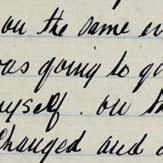 on the same
was going to
myself. on
changed and